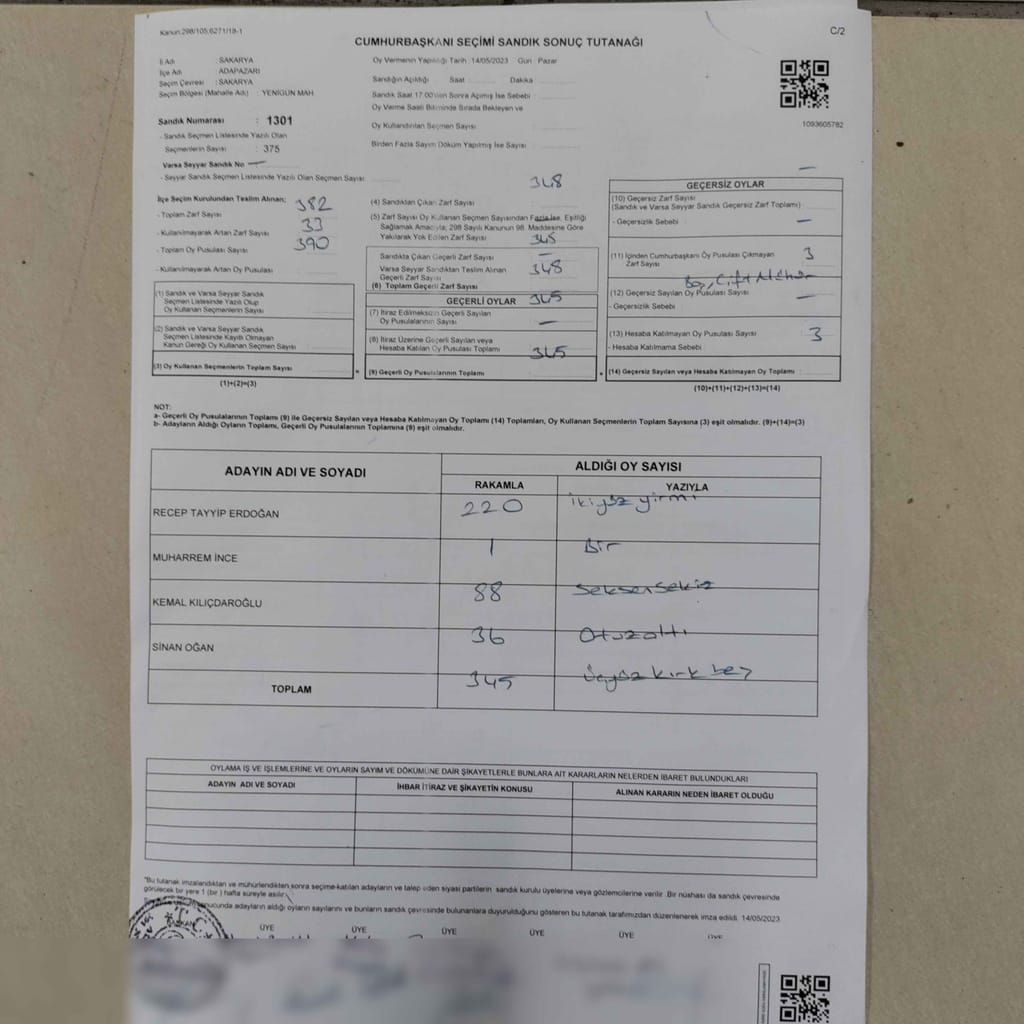 Kanun:298/105,6271/18-1
C/2
CUMHURBAŞKANI SEÇİMİ SANDIK SONUÇ TUTANAĞI
İl Adı : SAKARYA
İlçe Adı : ADAPAZARI
Seçim Çevresi : SAKARYA
Seçim Bölgesi (Mahalle Adı) : YENİGÜN MAH.
Sandık Numarası : 1301
- Sandık Seçmen Listesinde Yazılı Olan
Seçmenlerin Sayısı : 375
Varsa Seyyar Sandık No —
- Seyyar Sandık Seçmen Listesinde Yazılı Olan Seçmen Sayısı
Oy Vermenin Yapıldığı Tarih :14/05/2023 Gün : Pazar
Sandığın Açıldığı Saat : Dakika :
Sandık Saat 17:00'den Sonra Açılmış İse Sebebi :
Oy Verme Saati Bitiminde Sırada Bekleyen ve
Oy Kullandırılan Seçmen Sayısı :
Birden Fazla Sayım Döküm Yapılmış İse Sayısı :
1093605782
İlçe Seçim Kurulundan Teslim Alınan;
- Toplam Zarf Sayısı 382
- Kullanılmayarak Artan Zarf Sayısı 33
- Toplam Oy Pusulası Sayısı 390
- Kullanılmayarak Artan Oy Pusulası
(1) Sandık ve Varsa Seyyar Sandık
Seçmen Listesinde Yazılı Olup
Oy Kullanan Seçmenlerin Sayısı
(2) Sandık ve Varsa Seyyar Sandık
Seçmen Listesinde Kayıtlı Olmayan
Kanun Gereği Oy Kullanan Seçmen Sayısı
(3) Oy Kullanan Seçmenlerin Toplam Sayısı
(1)+(2)=(3)
348
(4) Sandıktan Çıkan Zarf Sayısı
(5) Zarf Sayısı Oy Kullanan Seçmen Sayısından Fazla İse, Eşitliği
Sağlamak Amacıyla; 298 Sayılı Kanunun 98. Maddesine Göre
Yakılarak Yok Edilen Zarf Sayısı 345
Sandıkta Çıkan Geçerli Zarf Sayısı —
Varsa Seyyar Sandıktan Teslim Alınan 348
Geçerli Zarf Sayısı
(6) Toplam Geçerli Zarf Sayısı
GEÇERLİ OYLAR 345
(7) İtiraz Edilmeksizin Geçerli Sayılan
Oy Pusulalarının Sayısı —
(8) İtiraz Üzerine Geçerli Sayılan veya
Hesaba Katılan Oy Pusulası Toplamı 345
(9) Geçerli Oy Pusulalarının Toplamı
—
GEÇERSİZ OYLAR
(10) Geçersiz Zarf Sayısı
(Sandık ve Varsa Seyyar Sandık Geçersiz Zarf Toplamı)
- Geçersizlik Sebebi —
(11) İçinden Cumhurbaşkanı Oy Pusulası Çıkmayan 3
Zarf Sayısı
Boş, Çift Mühür
(12) Geçersiz Sayılan Oy Pusulası Sayısı
- Geçersizlik Sebebi —
(13) Hesaba Katılmayan Oy Pusulası Sayısı 3
- Hesaba Katılmama Sebebi
(14) Geçersiz Sayılan veya Hesaba Katılmayan Oy Toplamı :
(10)+(11)+(12)+(13)=(14)
NOT:
a- Geçerli Oy Pusulalarının Toplamı (9) ile Geçersiz Sayılan veya Hesaba Katılmayan Oy Toplamı (14) Toplamları, Oy Kullanan Seçmenlerin Toplam Sayısına (3) eşit olmalıdır. (9)+(14)=(3)
b- Adayların Aldığı Oyların Toplamı, Geçerli Oy Pusulalarının Toplamına (9) eşit olmalıdır.
ADAYIN ADI VE SOYADI ALDIĞI OY SAYISI
RAKAMLA YAZIYLA
RECEP TAYYİP ERDOĞAN 220 ikiyüz yirmi
MUHARREM İNCE 1 Bir
KEMAL KILIÇDAROĞLU 88 Seksensekiz
SİNAN OĞAN 36 Otuzaltı
TOPLAM 345 Üçyüz kırk beş
OYLAMA İŞ VE İŞLEMLERİNE VE OYLARIN SAYIM VE DÖKÜMÜNE DAİR ŞİKAYETLERLE BUNLARA AİT KARARLARIN NELERDEN İBARET BULUNDUKLARI
ADAYIN ADI VE SOYADI İHBAR İTİRAZ VE ŞİKAYETİN KONUSU ALINAN KARARIN NEDEN İBARET OLDUĞU
"Bu tutanak imzalandıktan ve mühürlendikten sonra seçime katılan adayların ve talep eden siyasi partilerin sandık kurulu üyelerine veya gözlemcilerine verilir .Bir nüshası da sandık çevresinde
görülecek bir yere 1 (bir ) hafta süreyle asılır.
ucunda adayların aldığı oyların sayılarını ve bunların sandık çevresinde bulunanlara duyurulduğunu gösteren bu tutanak tarafımızdan düzenlenerek imza edildi. 14/05/2023
BAŞKAN ÜYE ÜYE ÜYE ÜYE ÜYE ÜYE